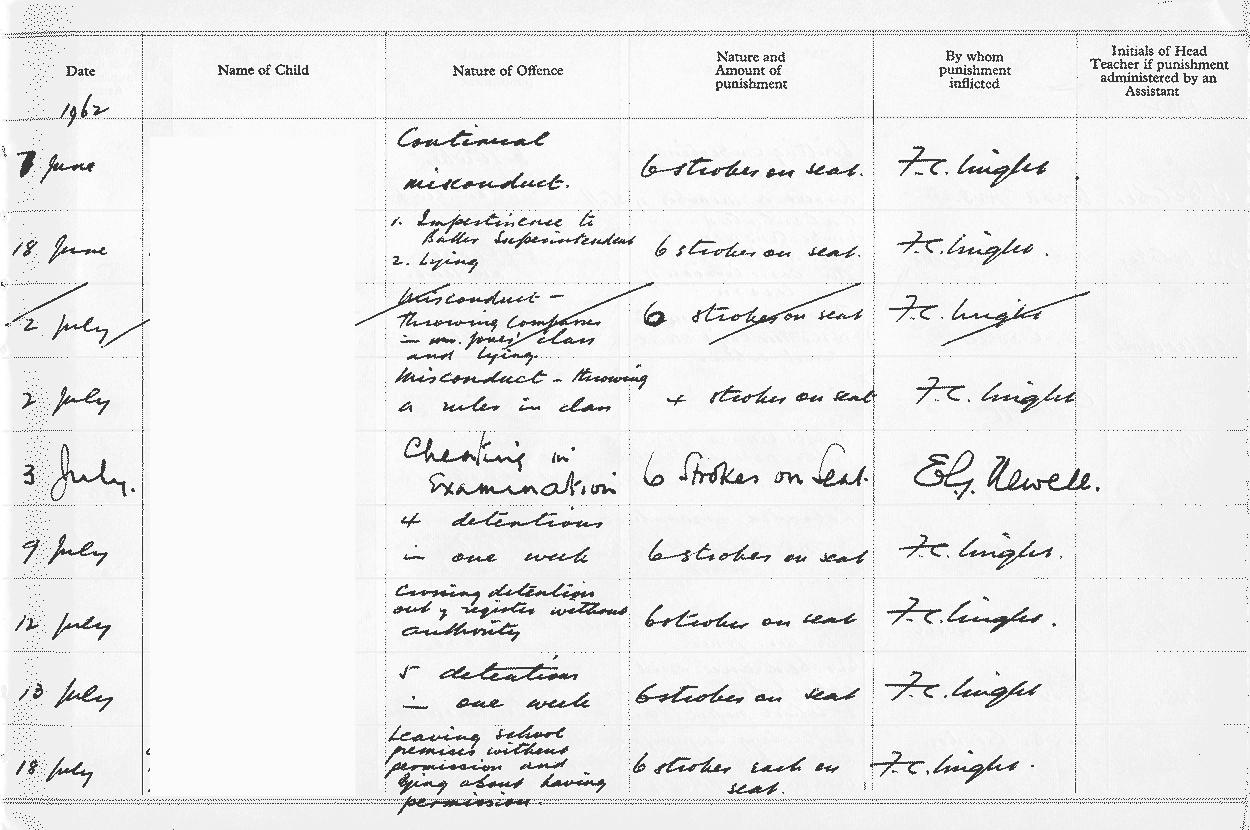 Date
Name of Child
Nature of Offence
Nature and
Amount of
punishment
By whom
punishment
inflicted
Initials of Head
Teacher if punishment
administered by an
Assistant
1962
7 June
Continual
misconduct.
6 strokes on seat.
F.C. Wright
18 June
1. Impertinence to
Baths Superintendent
2. Lying
6 strokes on seat.
F.C. Wright.
2 July
Misconduct –
throwing compasses
in Mr. Jones' class
and lying.
6 strokes on seat
F.C. Wright
2 July
Misconduct – throwing
a ruler in class
4 strokes on seat
F.C. Wright
3 July.
Cheating in
Examination
6 Strokes on Seat.
E.G. Newell.
9 July
4 detentions
in one week
6 strokes on seat
F.C. Wright.
12 July
Crossing detention
out of register without
authority
6 strokes on seat
F.C. Wright.
13 July
5 detentions
in one week
6 strokes on seat
F.C. Wright
18 July
Leaving school
premises without
permission and
lying about having
permission.
6 strokes each on
seat.
F.C. Wright.